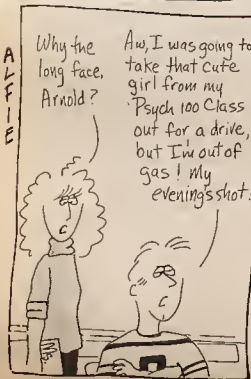 ALFIE
Why the
long face,
Arnold?
Aw, I was going to
take that cute
girl from my
Psych 100 Class
out for a drive,
but I'm out of
gas! My
evenings shot.